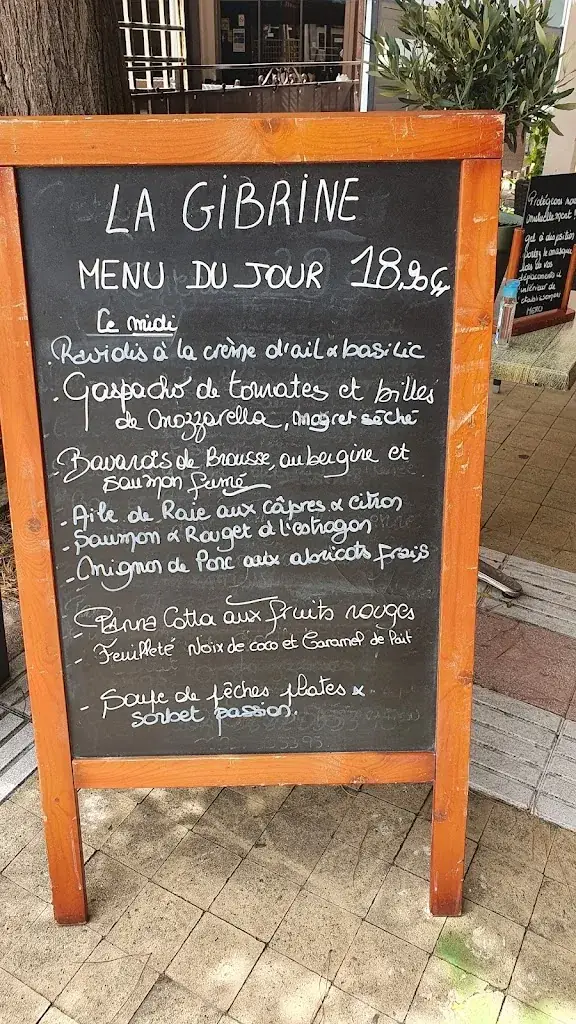 LA GIBRINE
MENU DU JOUR 18,90€
Ce midi
. Raviolis à la crème d'ail & basilic
- Gaspacho de tomates et billes
de mozzarella, magret séché
- Bavarois de Brousse, aubergine et
saumon fumé
- Aile de Raie aux câpres & citron
- Saumon & Rouget à l'estragon
- Mignon de Porc aux abricots frais
- Panna Cotta aux fruits rouges
- Feuilleté Noix de coco et Caramel de lait
- Soupe de pêches plates &
sorbet passion.
Protégeons nous
mutuellement !
gel à disposition
portez le masque
lors de vos
déplacements à
intérieur de
MERCI